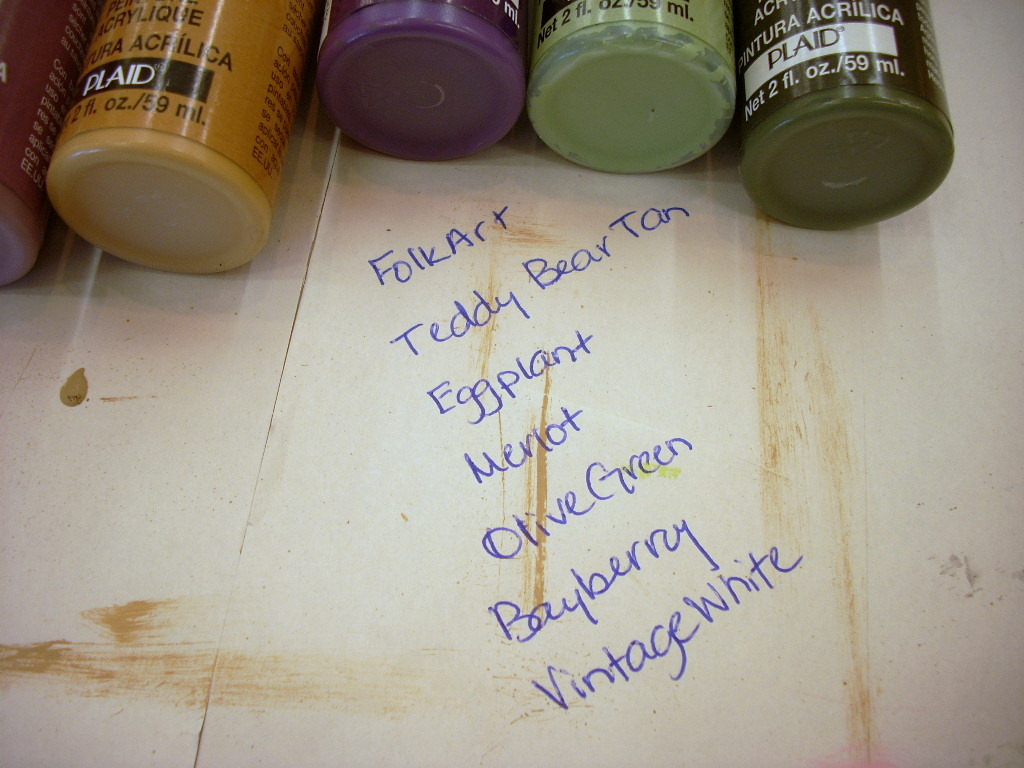 PEINTURE ACRYLIQUE
PINTURA ACRÍLICA
PLAID®
2 fl. oz./59 ml.
ml.
Net 2 fl. oz./59 ml.
PINTURA ACRÍLICA
PLAID®
Net 2 fl. oz./59 ml.
FolkArt
Teddy Bear Tan
Eggplant
Merlot
Olive Green
Bayberry
Vintage White